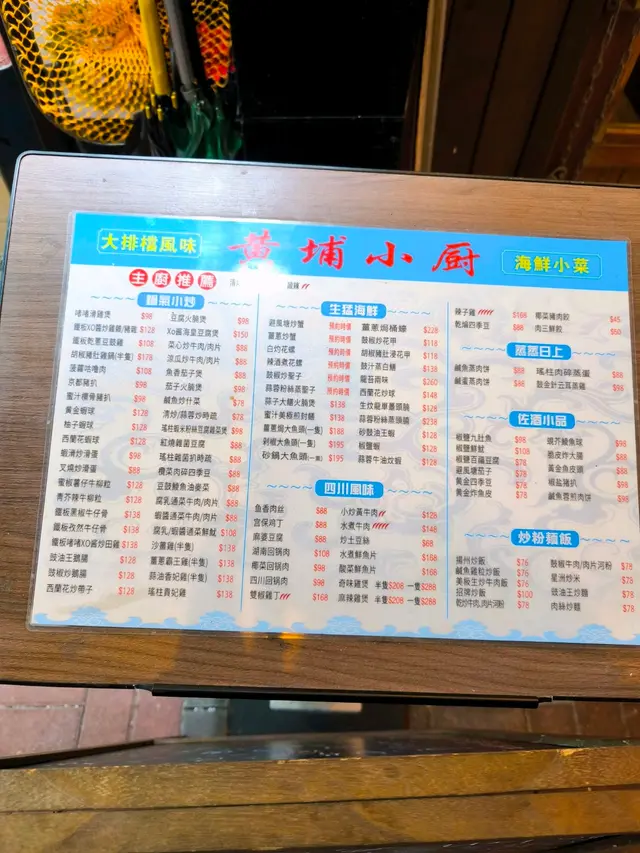 大排檔風味
黃埔小厨
海鮮小菜
主厨推薦
鑊氣小炒
啫啫滑雞煲 $98
鐵板XO醬炒雞鵝/豬雜 $128
鐵板乾葱豆豉雞 $88
胡椒豬肚雞鍋(半隻) $178
菠蘿咕嚕肉 $108
京都豬扒 $98
蜜汁欖骨豬扒 $98
黃金蝦球 $128
柚子蝦球 $128
西蘭花蝦球 $128
蝦滑炒滑蛋 $88
叉燒炒滑蛋 $88
蜜椒薯仔牛柳粒 $128
青芥辣牛柳粒 $128
鐵板黑椒牛仔骨 $138
鐵板孜然牛仔骨 $138
鐵板啫啫XO醬炒田雞 $138
豉油王鵝腸 $128
豉椒炒鵝腸 $128
西蘭花炒帶子 $138
豆腐火腩煲 $98
Xo醬海皇豆腐煲 $150
菜心炒牛肉/肉片 $88
涼瓜炒牛肉/肉片 $88
魚香茄子煲 $88
茄子火腩煲 $98
鹹魚炒什菜 $78
清炒/蒜蓉炒時蔬 $78
瑤柱蝦米粉絲豆腐雜菜煲 $98
紅燒雜菌豆腐 $88
瑤柱雜菌扒時蔬 $88
欖菜肉碎四季豆 $88
豆豉鯪魚油麥菜 $88
腐乳通菜牛肉/肉片 $88
蝦醬通菜牛肉/肉片 $88
腐乳/蝦醬通菜鮮魷 $108
沙薑雞(半隻) $138
薑葱霸王雞(半隻) $138
蒜油香妃雞(半隻) $138
瑤柱貴妃雞 $138
生猛海鮮
避風塘炒蟹 預約時價
薑葱炒蟹 預約時價
白灼花螺 預約時價
辣酒煮花螺 預約時價
豉椒炒聖子 預約時價
蒜蓉粉絲蒸聖子 預約時價
蒜子大鱔火腩煲 $138
蜜汁黃金煎封鱔 $138
薑葱焗大魚頭(一隻) $188
剁椒大魚頭(一隻) $195
砂鍋大魚頭(一隻) $195
薑葱焗桶蠔 $228
豉椒炒花甲 $118
胡椒豬肚浸花甲 $118
豉汁蒸白鱔 $138
龍苔兩味 $260
西蘭花炒球 $148
生炆龍躉頭腩 $128
蒜蓉粉絲蒸頭腩 $238
砂鼓油王蝦 $128
椒鹽蝦 $128
蒜蓉牛油炆蝦 $128
四川風味
魚香肉丝 $88
宫保鸡丁 $88
麻婆豆腐 $88
湖南回鍋肉 $108
椰菜回鍋肉 $98
四川回鍋肉 $98
雙椒雞丁 $168
小炒黃牛肉 $128
水煮牛肉 $148
炒土豆絲 $88
水煮鮮魚片 $168
酸菜鮮魚片 $168
奇味雞煲 半隻$208 一隻$288
麻辣雞煲 半隻$208 一隻$288
辣子雞 $168
乾煸四季豆 $88
椰菜豬肉餃 $45
肉三鮮餃 $50
蒸蒸日上
鹹魚蒸肉餅 $88
鹹蛋蒸肉餅 $88
瑤柱肉碎蒸蛋 $88
豉金針云耳蒸雞 $98
佐酒小品
椒鹽九肚魚 $98
椒鹽鮮魷 $108
椒鹽百福豆腐 $78
避風塘茄子 $78
黃金四季豆 $78
黃金炸魚皮 $58
惹芥鯪魚球 $98
脆皮炸大腸 $98
黃金魚皮角 $88
椒鹽豬扒 $98
鹹魚蓉煎肉餅 $98
炒粉麵飯
揚州炒飯 $76
鹹魚雞粒炒飯 $76
美極生炒牛肉飯 $76
招牌炒飯 $100
乾炒牛肉,肉片河粉 $78
豉椒牛肉/肉片河粉 $78
星洲炒米 $78
豉油王炒麵 $78
肉絲炒麵 $78